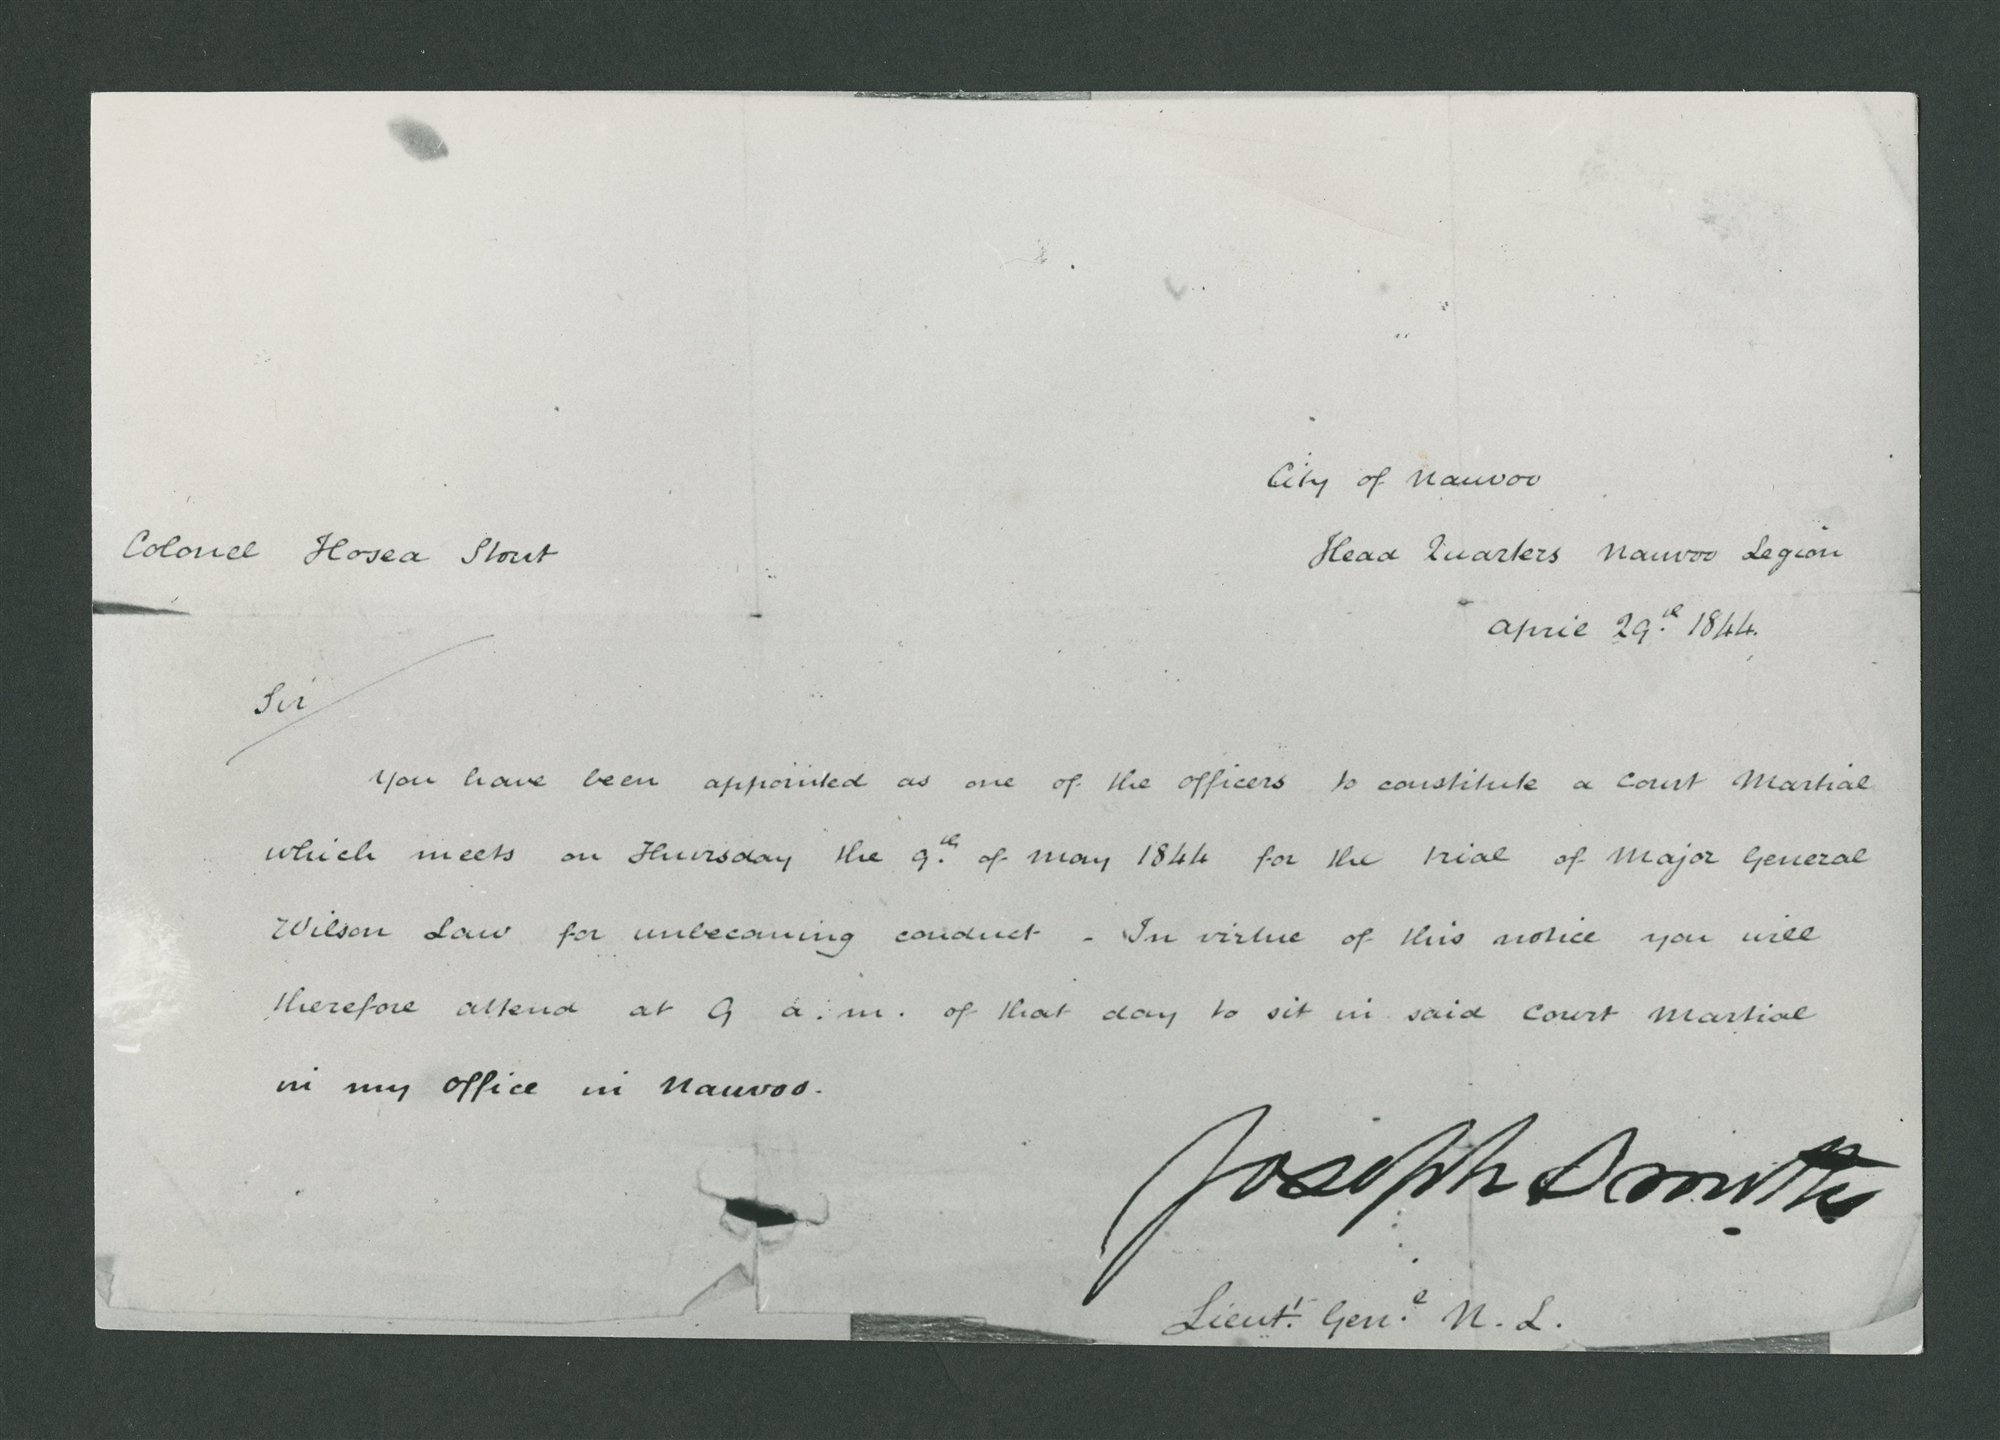 City of Nauvoo
Colonel Hosea Stout
Head Quarters Nauvoo Legion
April 29.th 1844.
Sir
You have been appointed as one of the officers to constitute a Court Martial
which meets on Thursday the 9.th of May 1844 for the trial of Major General
Wilson Law for unbecoming conduct - In virtue of this notice you will
therefore attend at 9 a.m. of that day to sit in said Court Martial
in my office in Nauvoo.
Joseph Smith
Lieut.t Gen.l N. L.